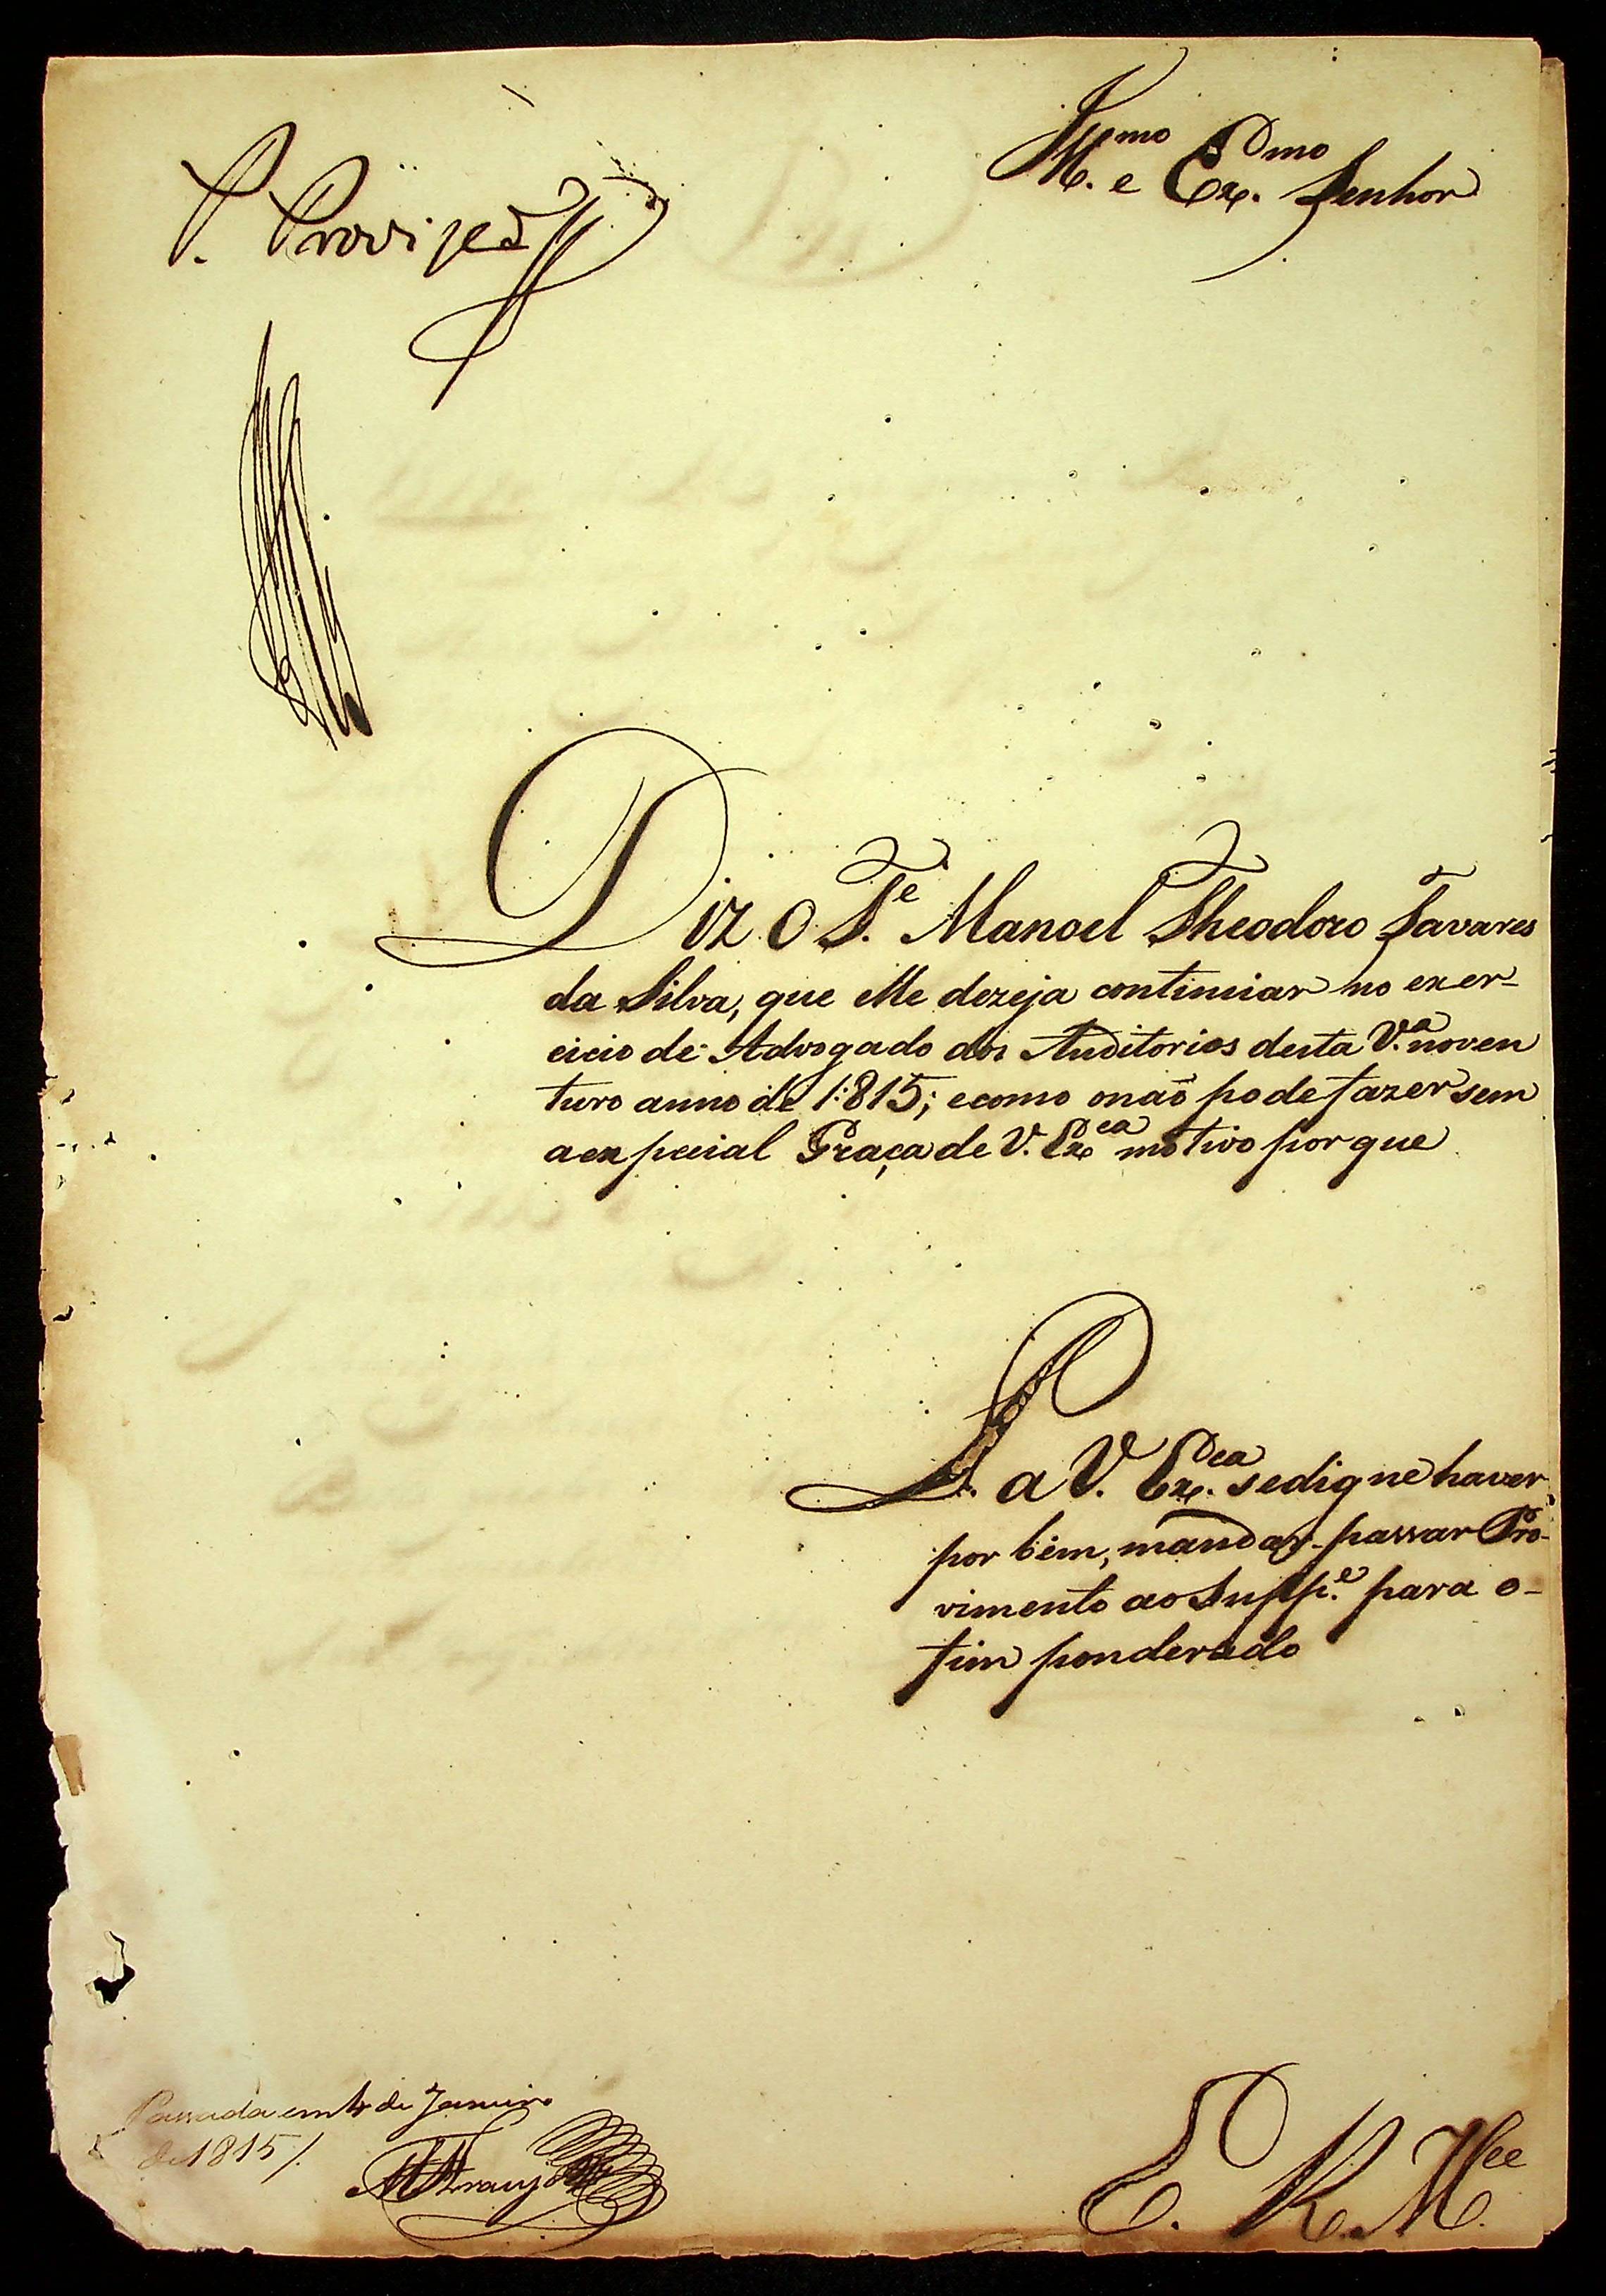 Ill.mo e Ex.mo Senhor
P. Provizão
Diz o T.e Manoel Theodoro Tavares
da Silva, que elle dezeja continuar no exer-
cicio de Advogado dos Auditorios desta V.a no ven
turo anno de 1:815; e como o não pode fazer sem
a especial Graça de V. Ex.ca motivo por que
P. a V. Ex.ca se digne haver
por bem, mandar passar Pro-
vimento ao Supp.e para o-
fim ponderado
Passada em 4 de Janeiro
de 1815 /.
Araujo
E. R. M.ce